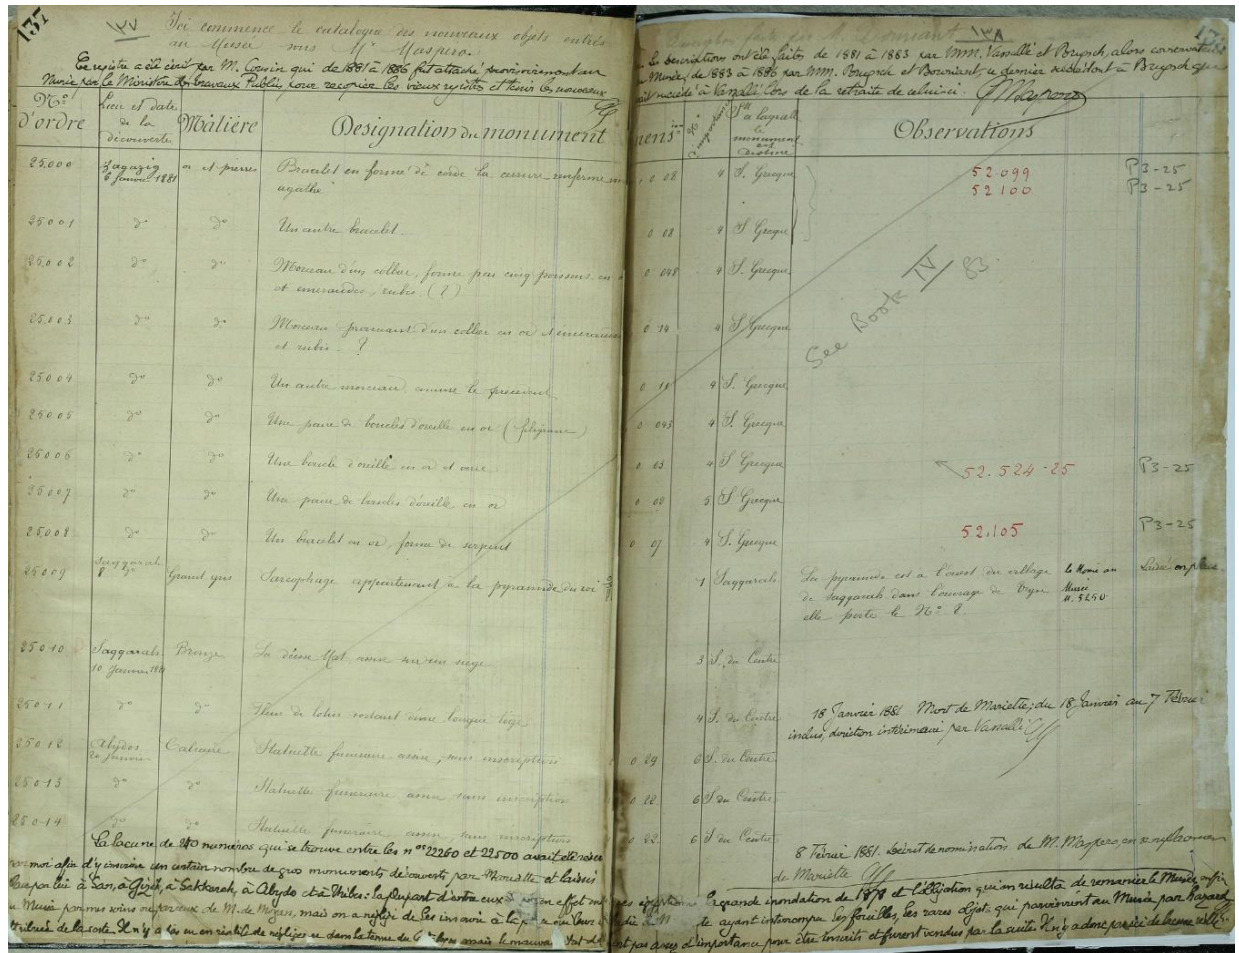 137
١٣٧
Ici commence le catalogue des nouveaux objets entrés
au Musée sous Mr Maspero.
Ce registre a été écrit par M. Cousin qui de 1881 à 1886 fut attaché provisoirement au
Musée par le Ministère des travaux Publics pour recopier les vieux registres et tenir les nouveaux
No d'ordre
Lieu et date de la découverte
Matière
Designation du monument
25000 Zagazig 6 Janvier 1881 or et pierres Bracelet en forme de corde la cassure renferme une
agathe
25001 do do Un autre bracelet.
25002 do do Morceau d'un collier, formé par cinq poissons en
et emeraudes, rubis (?)
25003 do do Morceau provenant d'un collier en or et émeraudes
et rubis ?
25004 do do Un autre morceau comme le precedent
25005 do do Une paire de boucles d'oreille en or (filigrane)
25006 do do Une boucle d'oreille en or et
25007 do do Une paire de boucles d'oreille en or
25008 do do Un bracelet en or, forme de serpent
25009 Saqqarah 8 do Granit gris Sarcophage appartenant à la pyramide du roi
25010 Saqqarah 10 Janvier 1881 Bronze La déesse Mat assise sur un siege
25011 do do Fleur de lotus sortant d'une longue tige
25012 Abydos 20 Janvier Calcaire Statuette funeraire assise, sans inscriptions
25013 do do Statuette funeraire assise sans inscription
25014 do do Statuette funéraire assise sans inscriptions
La lacune de 240 numéros qui se trouve entre les nos 22260 et 22500 avait été
par moi afin d'y inscrire un certain nombre de gros monuments découverts par Mariette et laissés
par lui à San, à Gizeh, à Sakkarah, à Abydos et à Thèbes: la plupart d'entre eux
Musée par mes soins ou par ceux de M. de Morgan, mais on a négligé de les inscrire à la
de la sorte. Il n'y a pas eu en réalité de négligence dans la tenue du livre mais le mauvais
١٣٨
138
Les descriptions ont été faites de 1881 à 1883 par MM. Vassalli et Brugsch, alors conservateurs
du Musée, de 1883 à 1886 par MM. Brugsch et Bouriant, ce dernier succédant à Brugsch qui
avait succédé à Vassalli lors de la retraite de celui-ci. G Maspero
No d'importance
Slle à laquelle le monument est destiné
Observations
0 08 4 S. Grecque 52.099 P3-25
52100 P3-25
0 08 4 S. Grecque
0 048 4 S. Grecque
See Book IV 83
0 14 4 S. Grecque
0 14 4 S. Grecque
0 043 4 S. Grecque
0 03 4 S. Grecque 52.524-25 P3-25
0 02 5 S. Grecque
0 07 4 S. Grecque 52.105 P3-25
1 Saqqarah La pyramide est à l'ouest du village
de Saqqarah dans l'ouvrage de Vyse
elle porte le No 8.
la Momie au
Musée
n. 5250
Laissé en place
3 S. du Centre
4 S. du Centre
18 Janvier 1881. Mort de Mariette; du 18 Janvier au 7 Février
inclus, direction intérimaire par Vassalli
0 29 6 S. du Centre
0 22 6 S du Centre
0 22 6 S du Centre
8 Février 1881. Décret de nomination de M. Maspero, en remplacement
de Mariette
La grande inondation de 1878 et l'obligation qui en résulta de remanier le Musée
ayant interrompu les fouilles, les rares objets qui parvinrent au Musée par hazard
pas assez d'importance pour être inscrits et furent vendus par la suite. Il n'y a donc pas ici de lacune réelle.